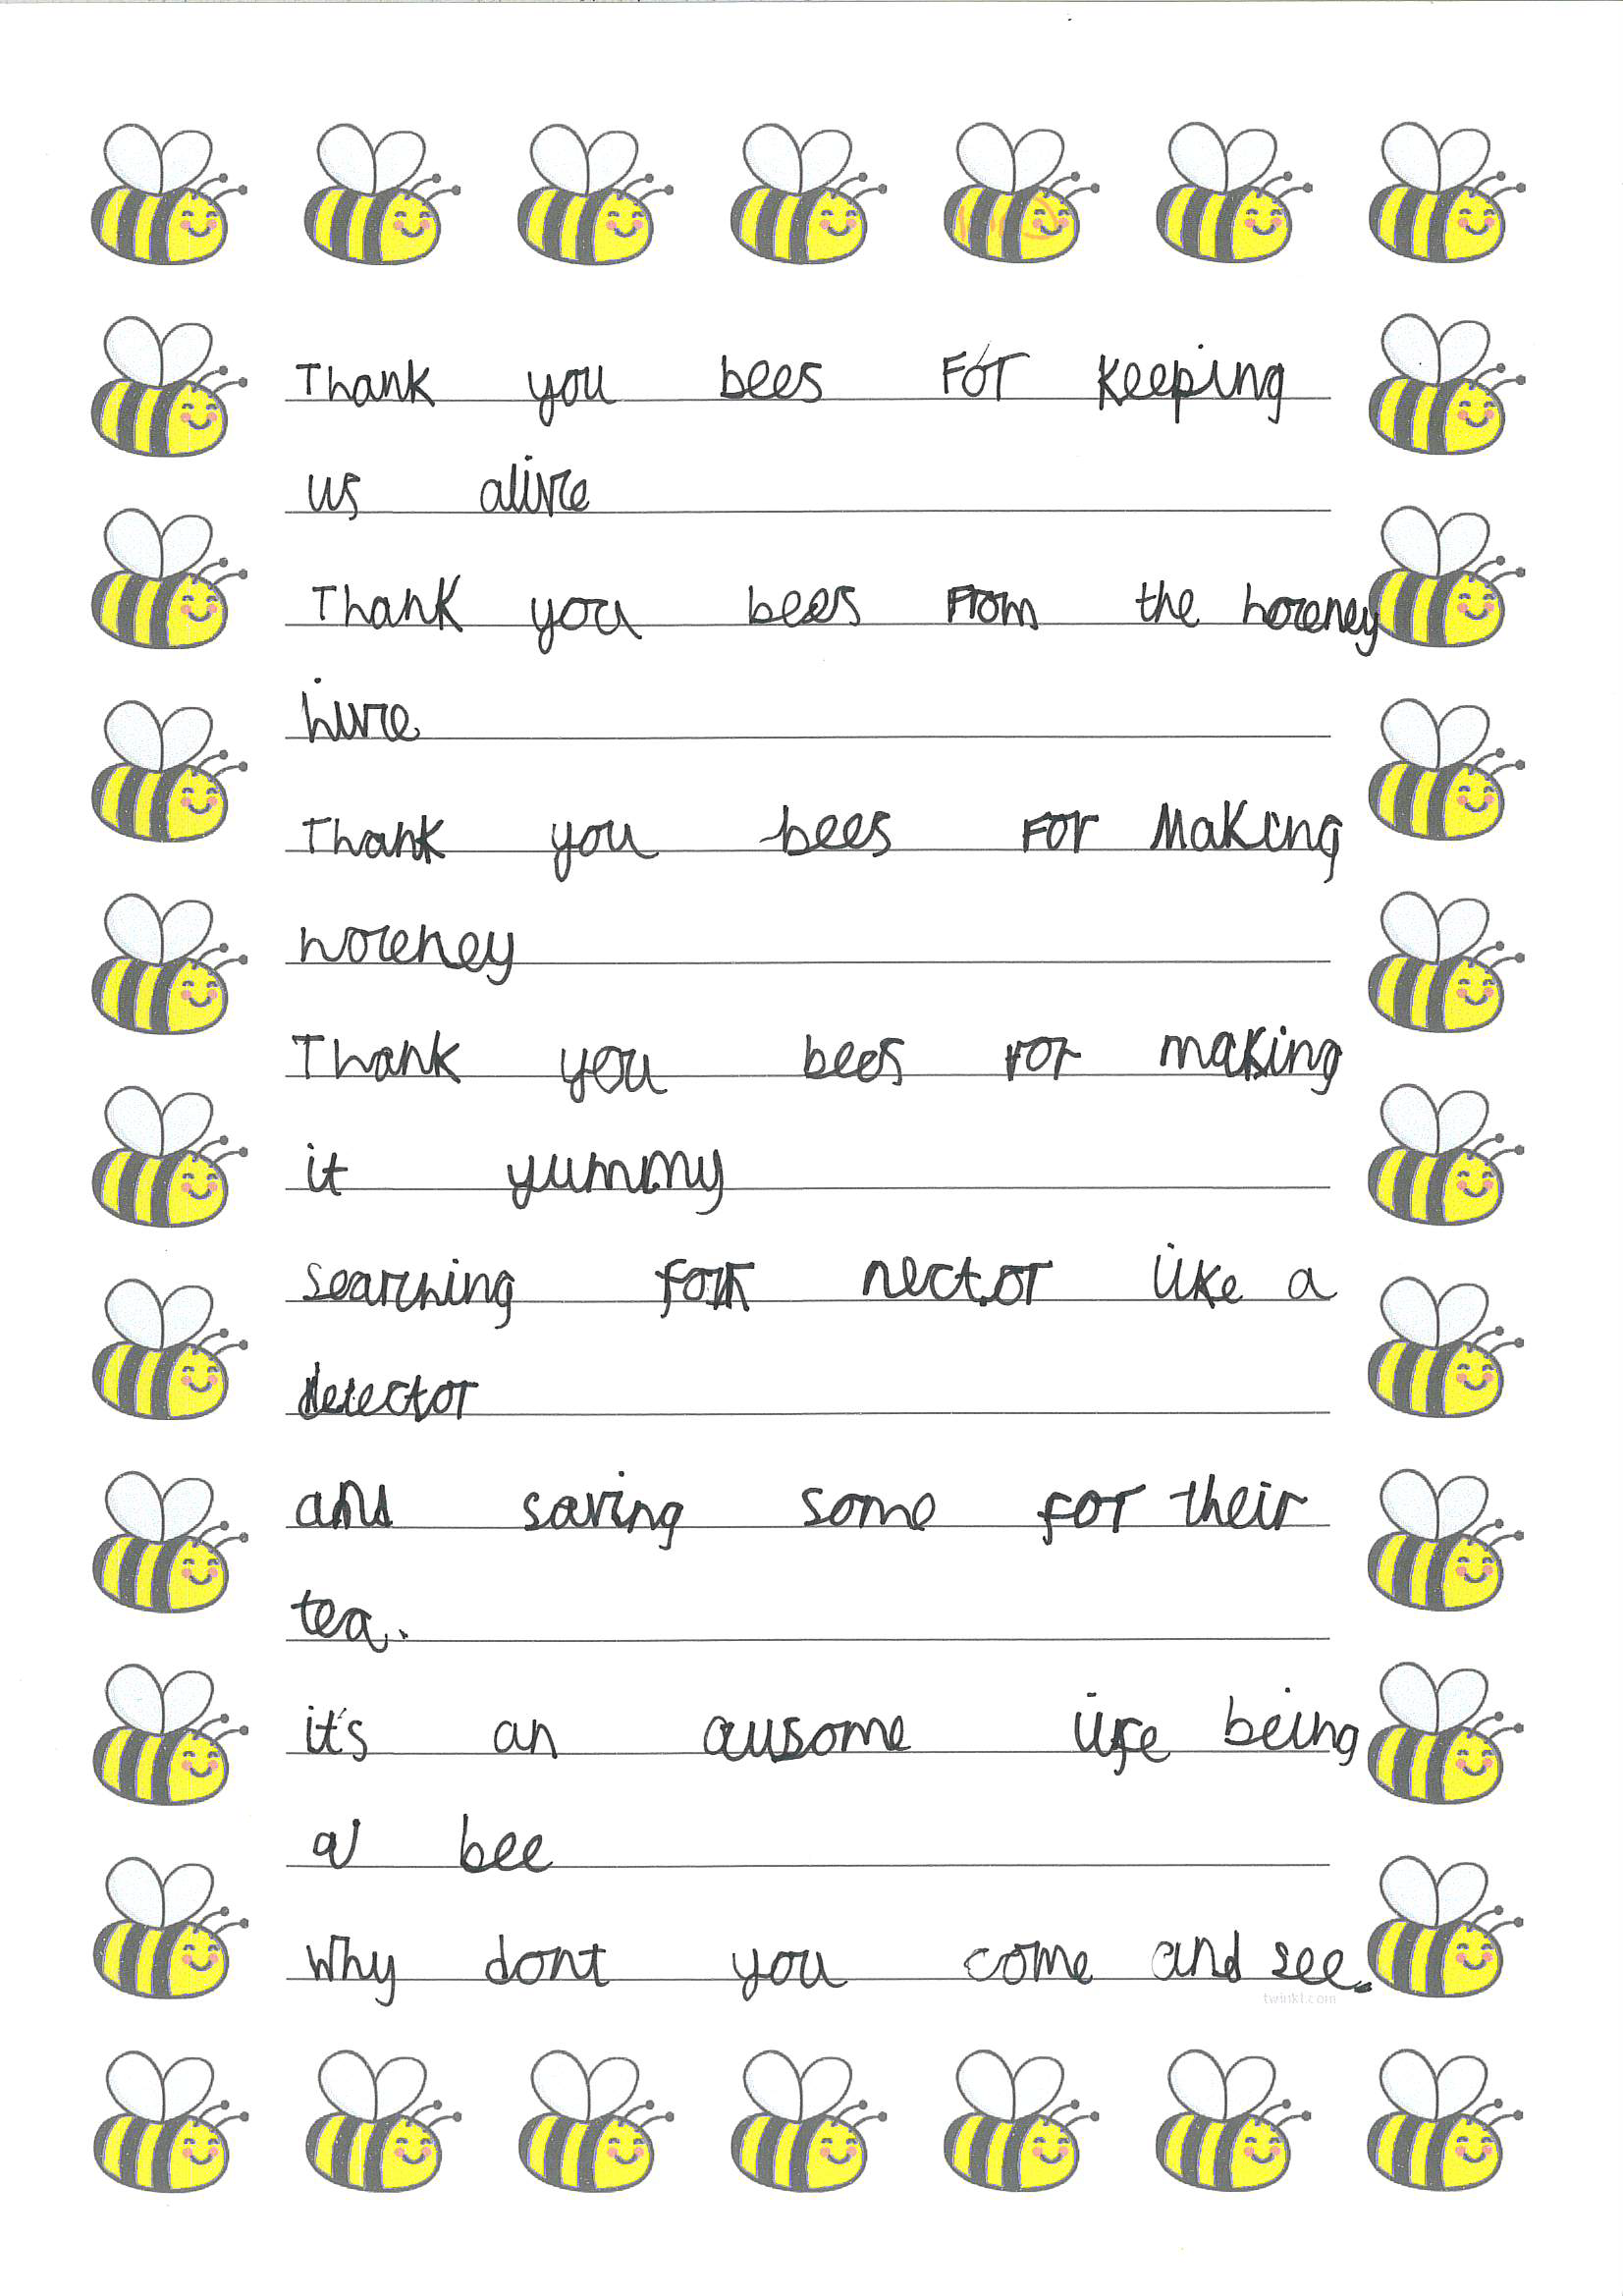 Thank you bees For Keeping
us alive
Thank you bees From the horeney
hive
Thank you bees For Making
horeney
Thank you bees for making
it yummy
searching for nector like a
detector
and saving some for their
tea.
it's an ausome life being
a bee
Why dont you come and see.
twinkl.com